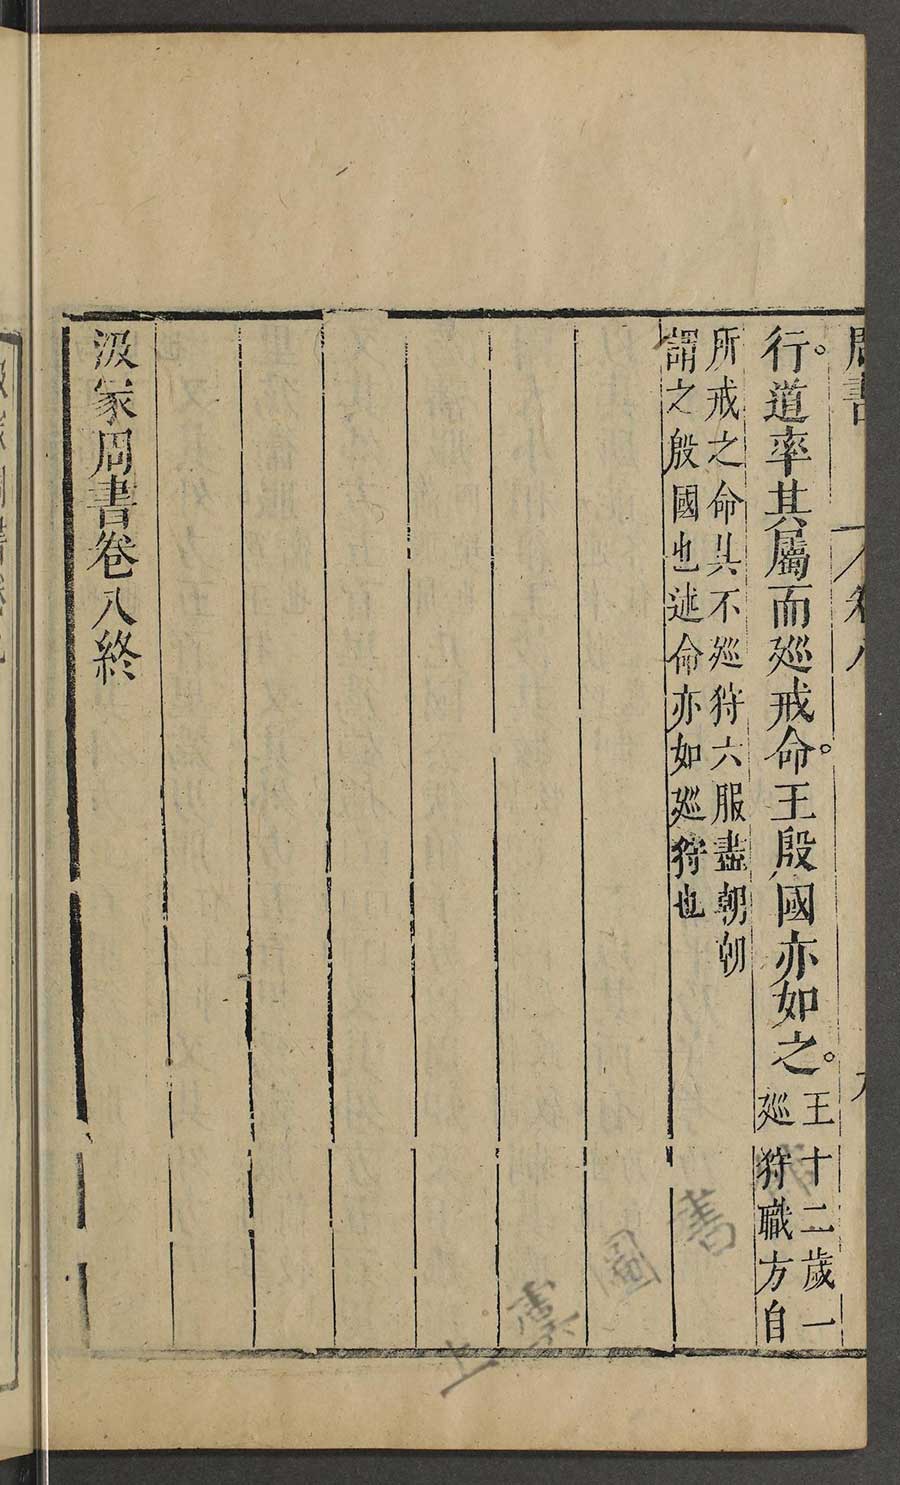 周書 卷八 九
行。道率其屬而廵戒命。王殷國亦如之。王十二歲一廵狩職方自
所戒之命其不廵狩六服盡朝朝
謂之殷國也述命亦如廵狩也
汲冢周書卷八終
上虞圖書館